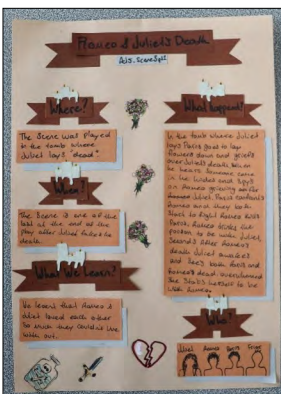 Romeo & Juliet's Death
Act 5. Scene 3
Where?
The Scene was played
in the tomb where
Juliet lays "dead"
When?
The Scene is one of the
last at the end of the
play after Juliet fakes her
death.
What We Learn?
We learnt that Romeo &
Juliet loved each other
so much they couldn't live
with out.
What happens?
In the tomb where Juliet
lays Paris goes to lay
flowers down and grieve
over Juliet's death. When
he hears someone come
in he hides and
on Romeo grieving
Juliet. Paris confronts
Romeo and they both
start to fight Romeo kills
Paris. Romeo drinks the
poison to be with Juliet.
Seconds after Romeo's
death Juliet awakes
and sees both Paris and
Romeo's dead
She stabs herself to be
with Romeo
Who?
Juliet Romeo Paris Friar